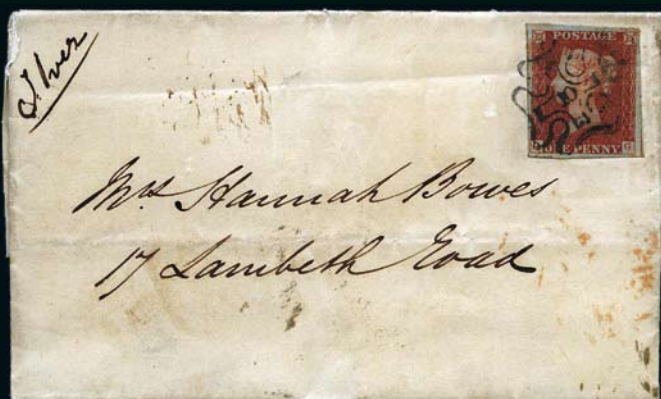 St. Ives
POSTAGE
ONE PENNY
Mrs Hannah Bowes
17 Lambeth Road